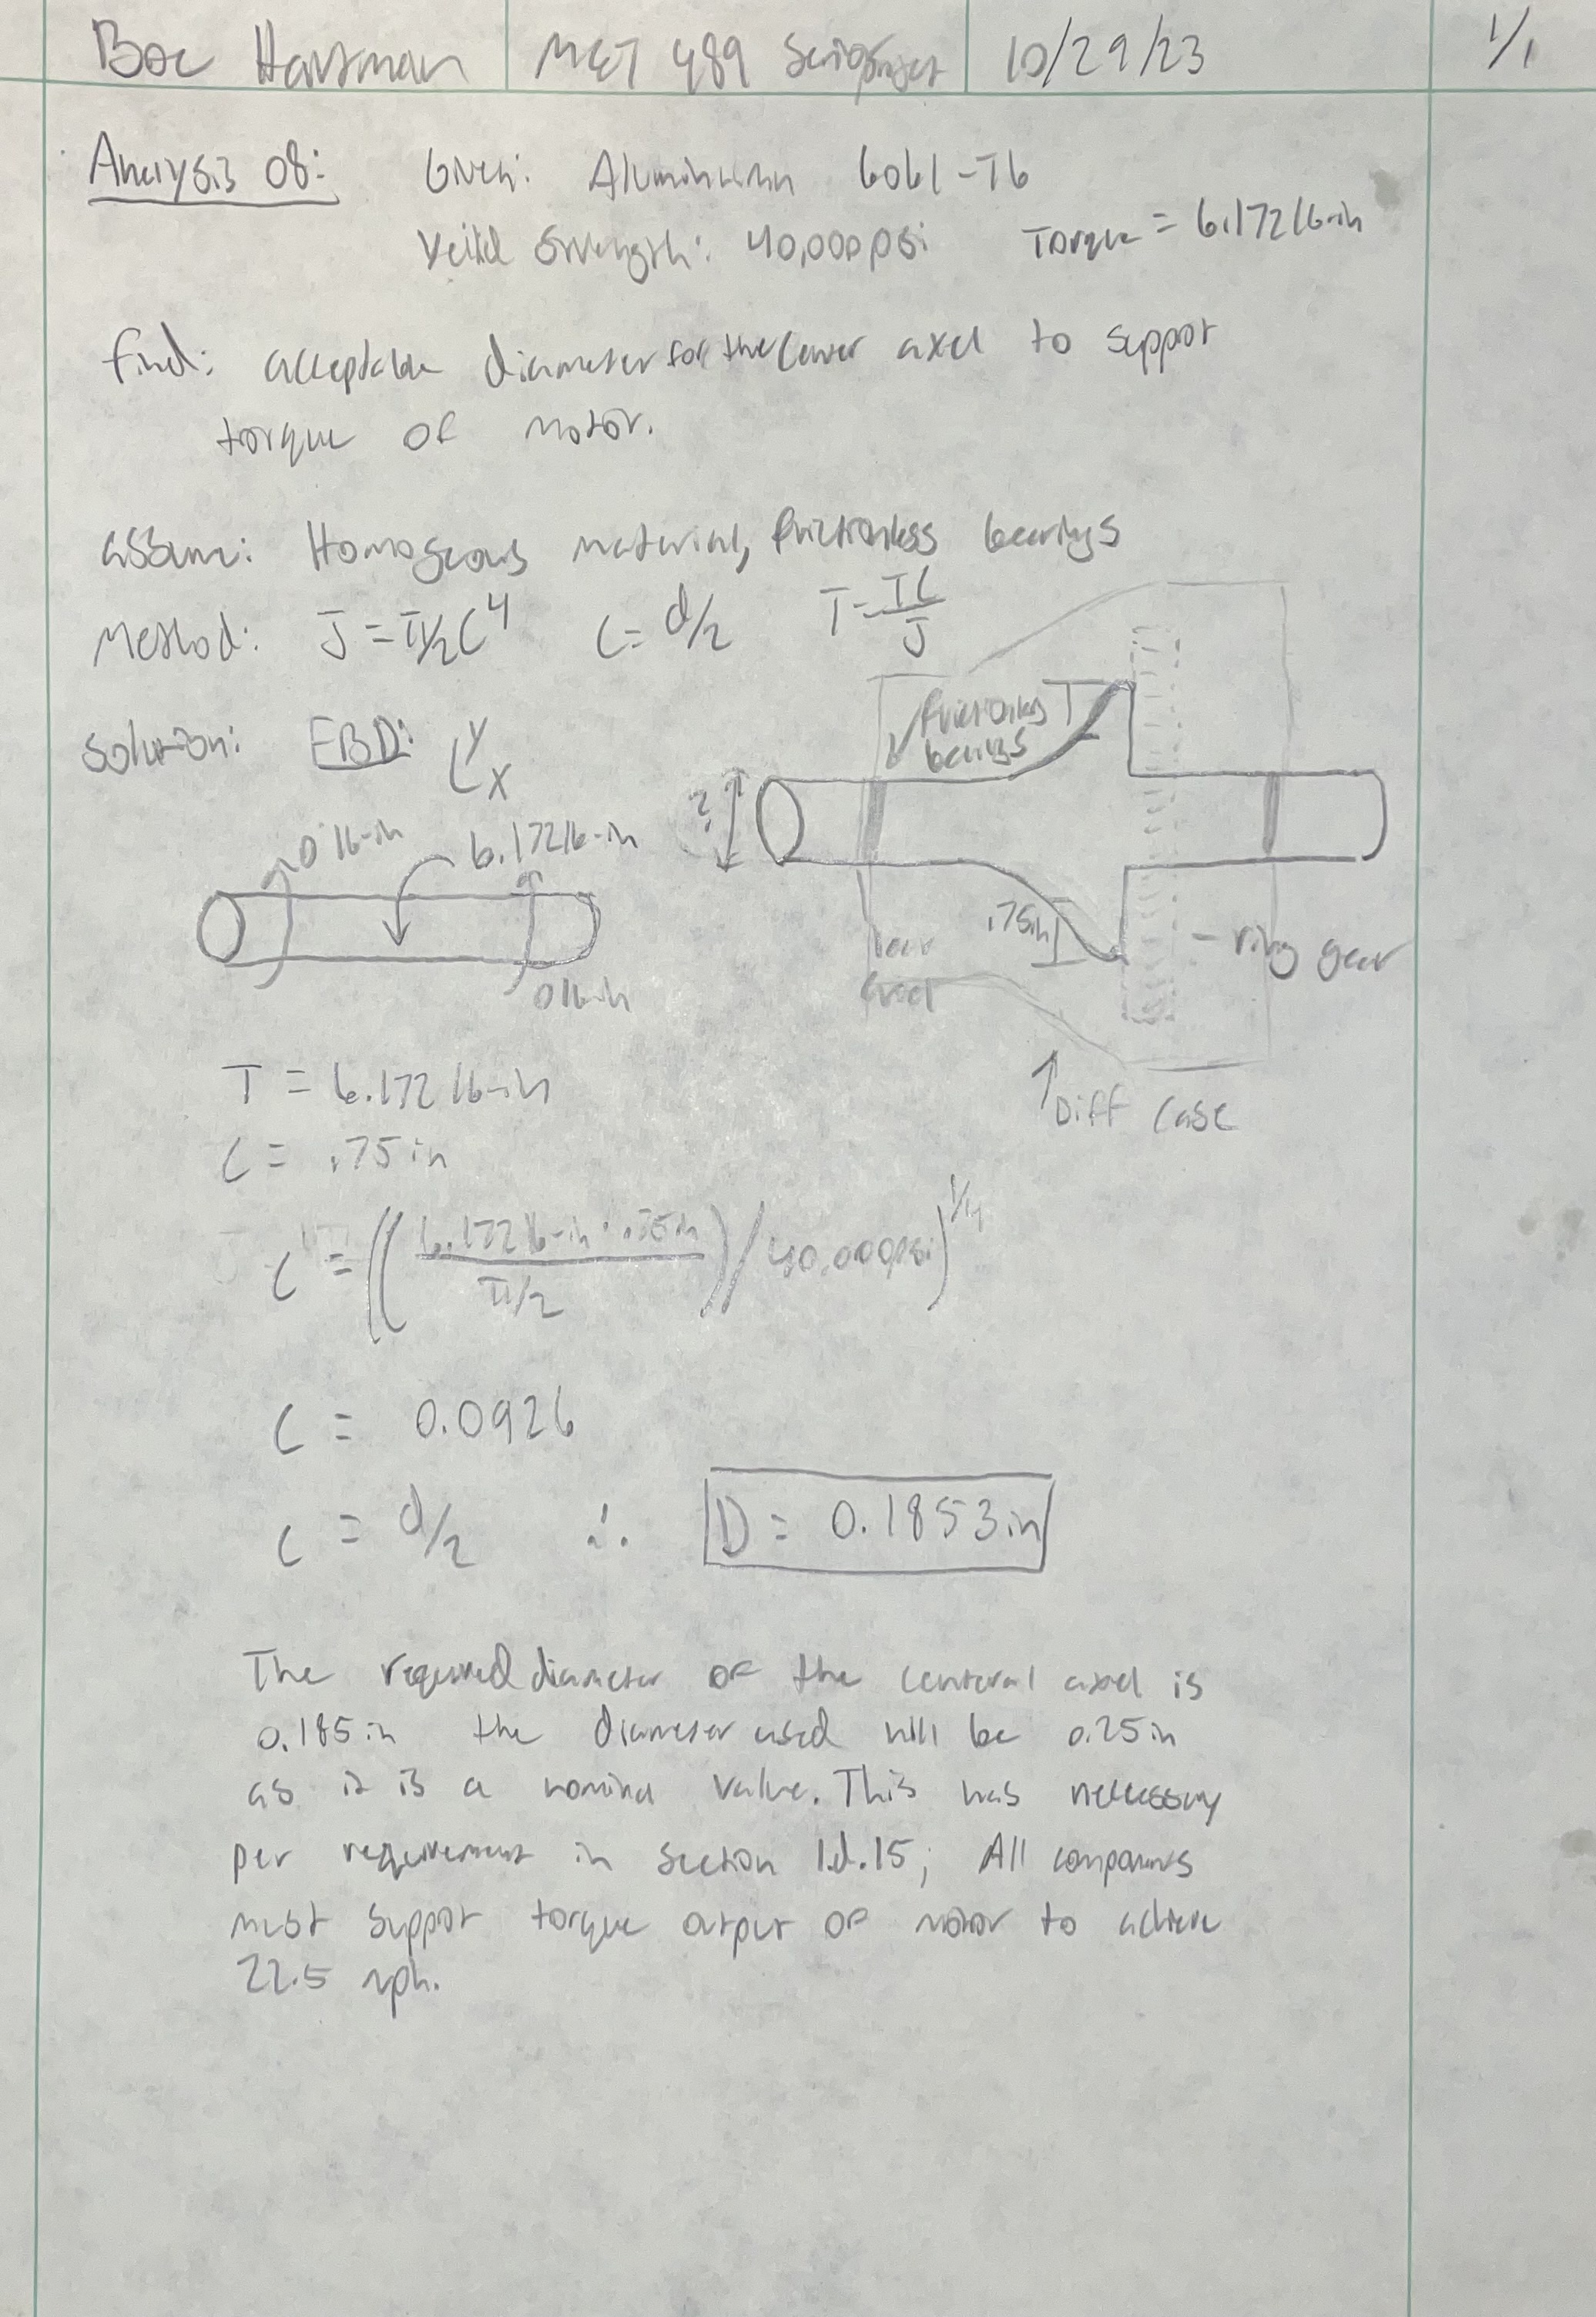 Boe Hartman MET 489 Senior Project 10/29/23 1/1
Analysis 08: Given: Aluminum 6061-T6
Yeild Strength: 40,000psi Torque = 6.172 lb-in
find: acceptable diameter for the lower axel to support
torque of motor.
assume: Homogeous material, frictionless bearings
Method: J = π/2 C^4 C = d/2 T = TC/J
Solution: FBD: y x
frictionless bearings
?
0 lb-in 6.172 lb-in
0 lb-in
.75in
- ring gear
Diff case
T = 6.172 lb-in
C = .75in
C = ((6.172 lb-in · .75in / π/2) / 40,000psi)^1/4
C = 0.0926
C = d/2 ∴ D = 0.1853in
The required diameter of the centeral axel is
0.185in the diameter used will be 0.25in
as it is a nominal value. This was necessary
per requirement in section 1.d.15; All components
must support torque output of motor to achieve
22.5 mph.